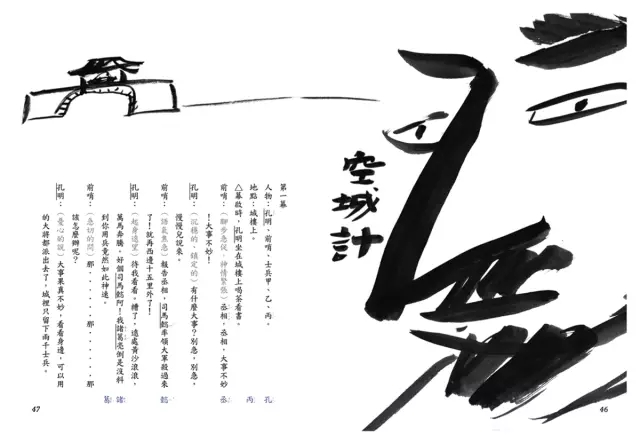 空城計
第一幕
人物：孔明、前哨、士兵甲、乙、丙。
地點：城樓上。
△幕啟時，孔明坐在城樓上喝茶看書。
前哨：（腳步急促，神情緊張）丞相，丞相，大事不妙
！大事不妙！
孔明：（沉穩的、鎮定的）有什麼大事？別急，別急，
慢慢兒說來。
前哨：（語氣焦急）報告丞相，司馬懿率領大軍殺過來
了！就再西邊十五里外了！
孔明：（起身遠望）待我看看。糟了，遠處黃沙滾滾，
萬馬奔騰。好個司馬懿阿！我諸葛亮倒是沒料
到你用兵竟然如此神速。
前哨：（急切的問）那．．．．．．那．．．．．．那
該怎麼辦呢？
孔明：（憂心的說）大事果真不妙，看看身邊，可以用
的大將都派出去了，城裡只留下兩千士兵。
孔
丙
丞
懿
諸
葛
46
47